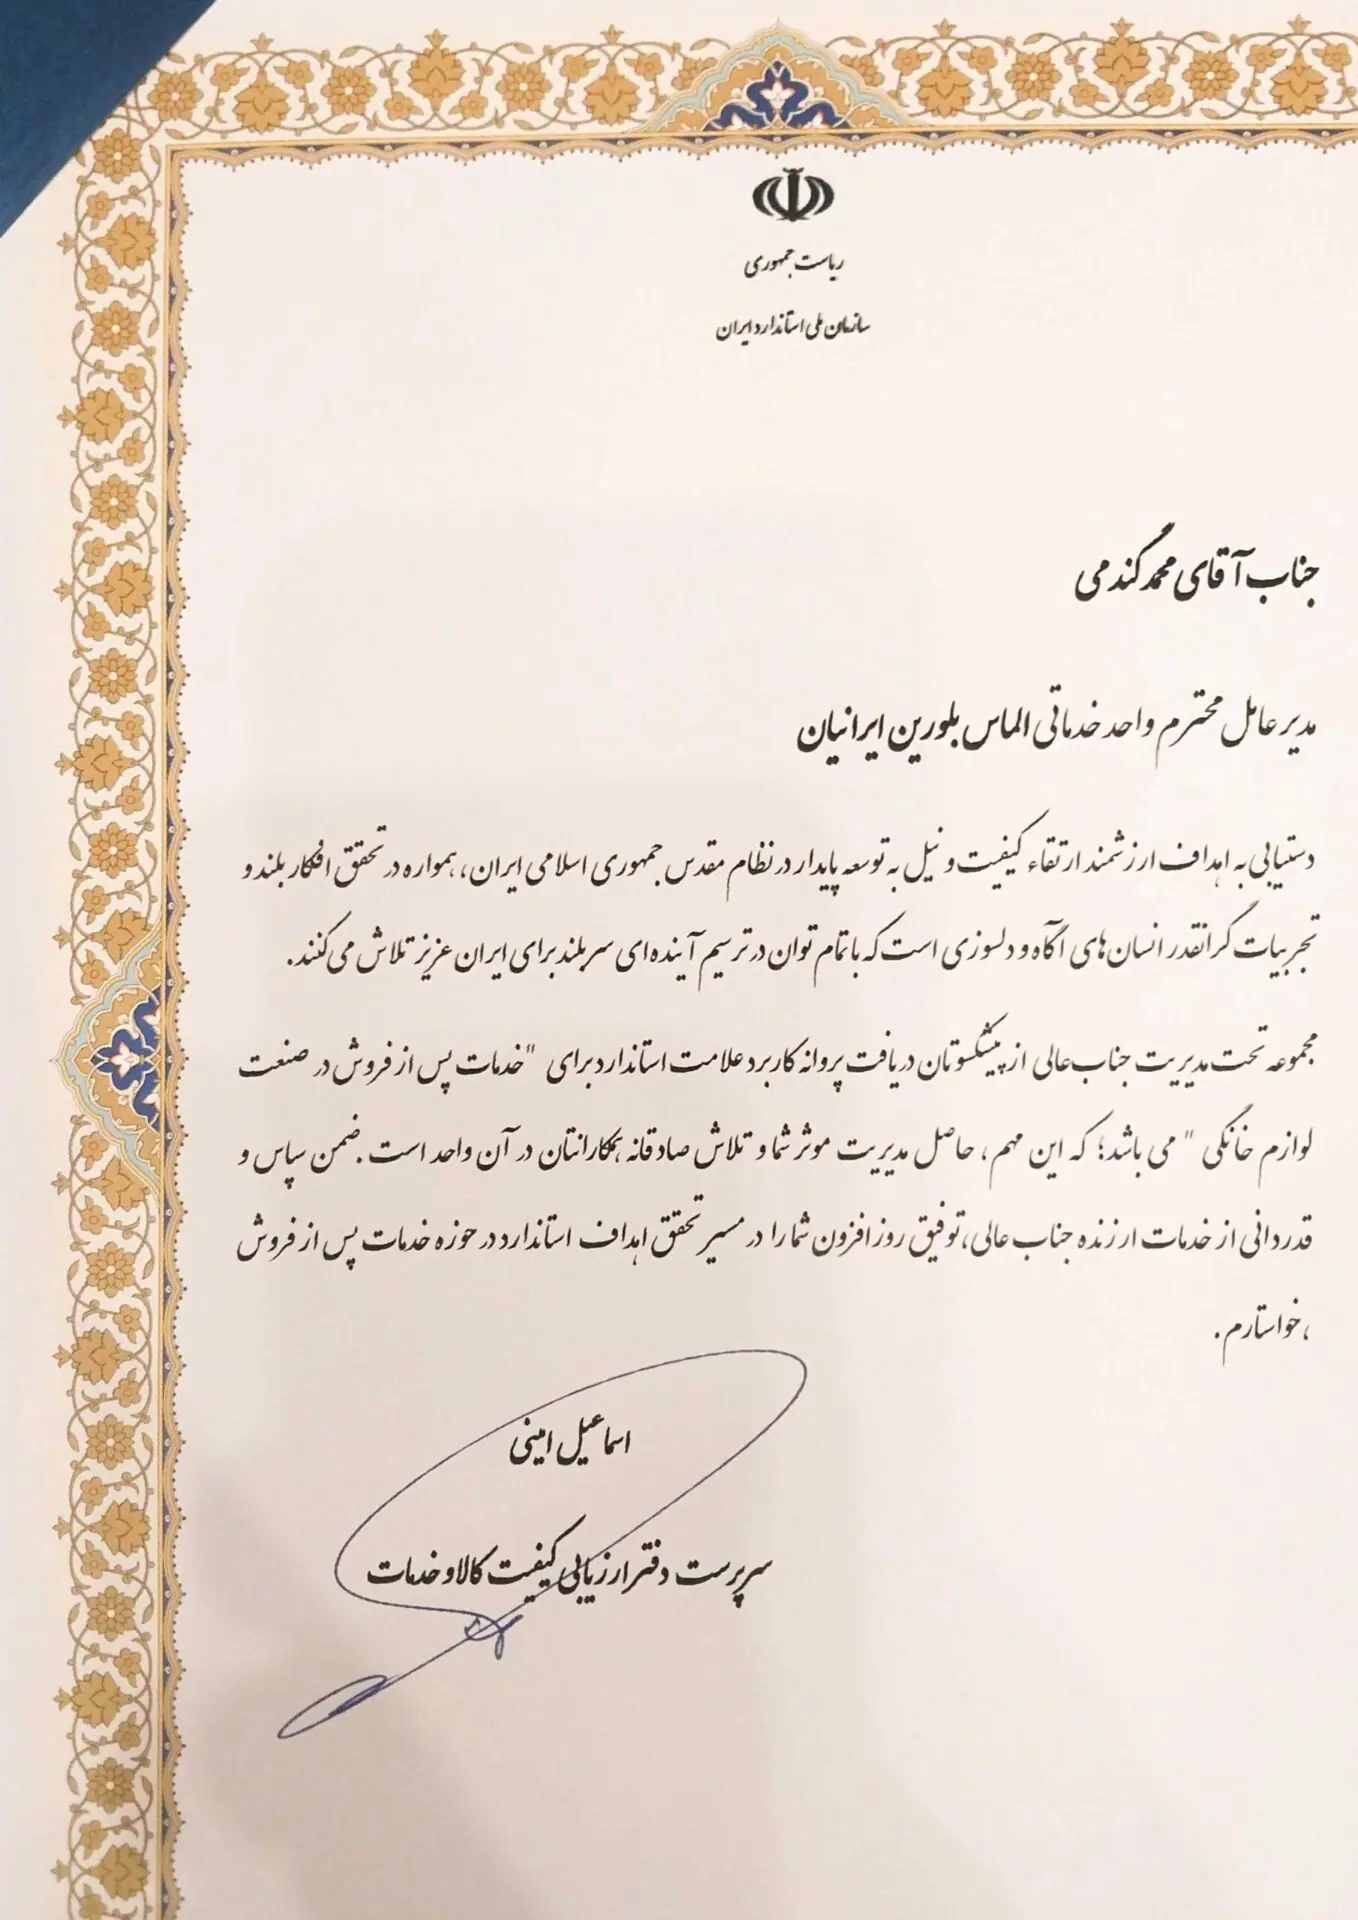 ریاست جمهوری
سازمان ملی استاندارد ایران
جناب آقای محمد گندمی
مدیر عامل محترم واحد خدماتی الماس بلورین ایرانیان
دستیابی به اهداف ارزشمند ارتقاء کیفیت و نیل به توسعه پایدار در نظام مقدس جمهوری اسلامی ایران، همواره در تحقق افکار بلند و
تجربیات گرانقدر انسان های آگاه و دلسوزی است که با تمام توان در ترسیم آینده ای سربلند برای ایران عزیز تلاش می کنند.
مجموعه تحت مدیریت جناب عالی از پیشکسوتان دریافت پروانه کاربرد علامت استاندارد برای "خدمات پس از فروش در صنعت
لوازم خانگی " می باشد؛ که این مهم، حاصل مدیریت موثر شما و تلاش صادقانه همکارانتان در آن واحد است. ضمن سپاس و
قدردانی از خدمات ارزنده جناب عالی، توفیق روز افزون شما را در مسیر تحقق اهداف استاندارد در حوزه خدمات پس از فروش
، خواستارم.
اسماعیل امینی
سرپرست دفتر ارزیابی کیفیت کالا و خدمات